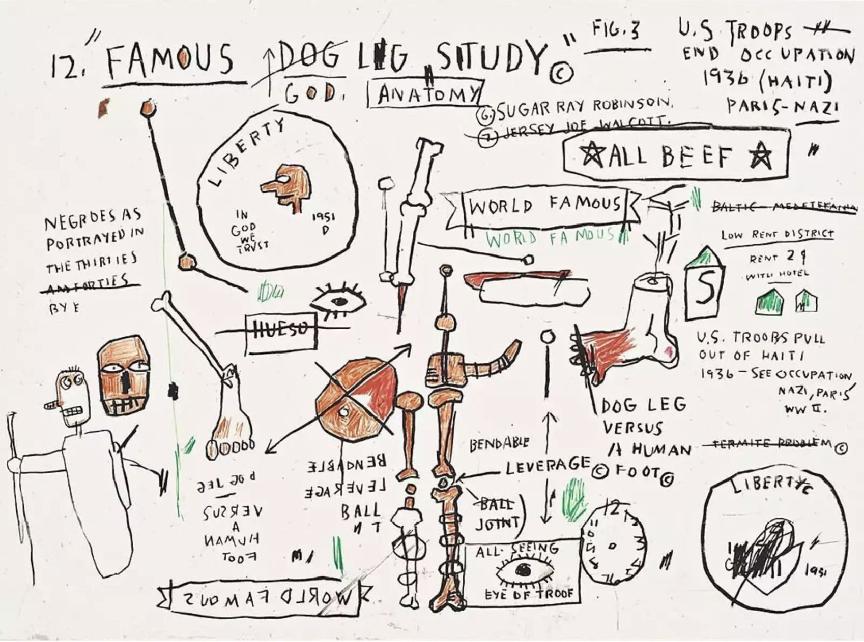 12. "FAMOUS DOG LEG STUDY" ©
GOD.
ANATOMY
FIG. 3
U.S. TROOPS
END OCCUPATION
1936 (HAITI)
PARIS-NAZI
6. SUGAR RAY ROBINSON.
7. JERSEY JOE WALCOTT.
☆ALL BEEF☆
LIBERTY
IN
GOD
WE
TRUST
1951
D
WORLD FAMOUS
WORLD FAMOUS
BALTIC - MEDETERANIAN
LOW RENT DISTRICT
RENT 2
WITH HOTEL
S
NEGROES AS
PORTRAYED IN
THE THIRTIES
BY
HUESO
U.S. TROOPS PULL
OUT OF HAITI
1936 - SEE OCCUPATION
NAZI, PARIS
WW II.
DOG LEG
VERSUS
A HUMAN
FOOT©
TERMITE PROBLEM©
BENDABLE
LEVERAGE©
BALL
JOINT
BENDABLE
LEVERAGE
BALL
DOG LEG
VERSUS
A
HUMAN
FOOT
12
ALL-SEEING
EYE OF TROOF
WORLD FAMOUS
LIBERTY
1951